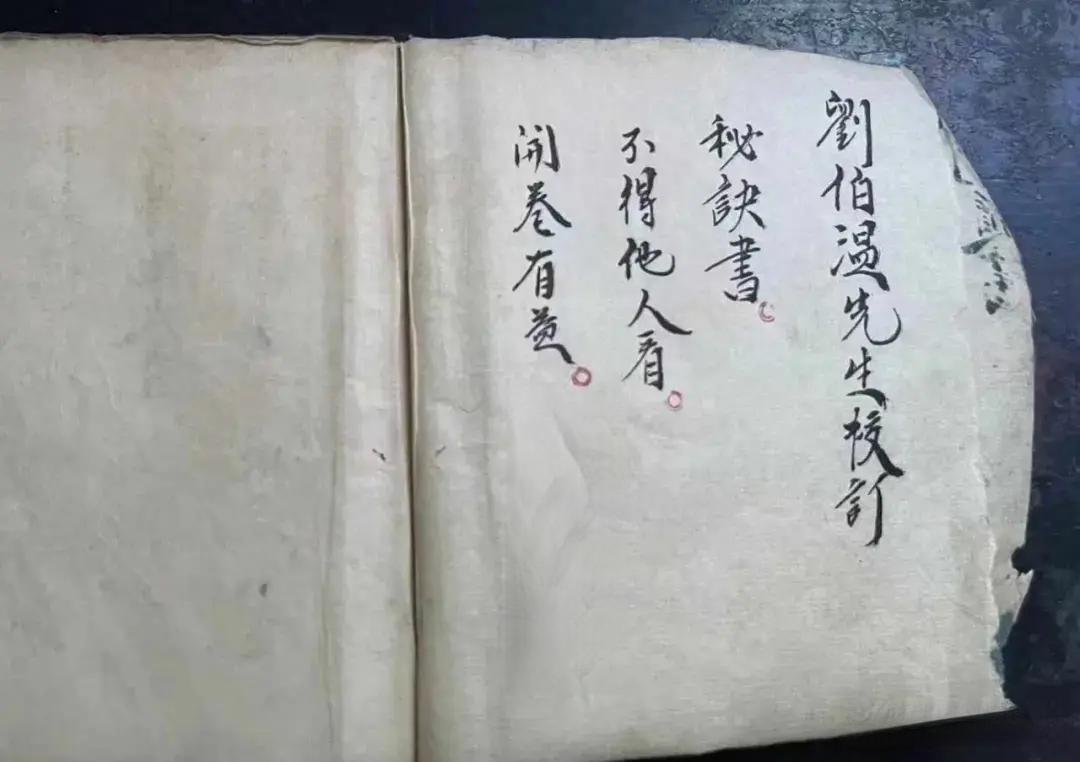 劉伯温先生校訂
秘訣書。
不得他人看。
開卷有益。